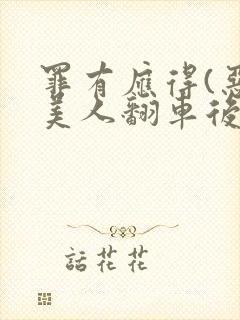 罪有應得(惡
美人翻車後
話花花